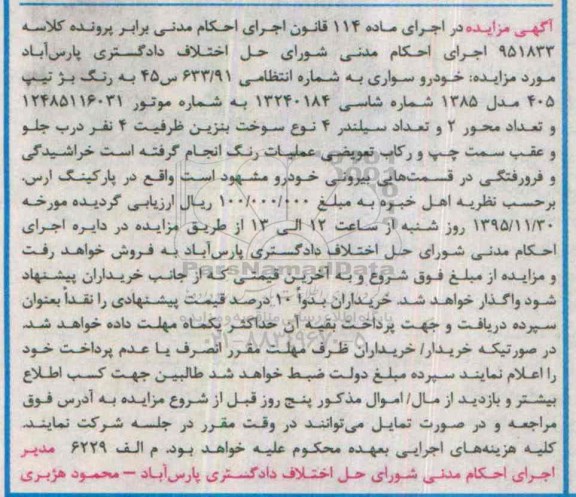 آگهی مزایده در اجرای ماده ۱۱۴ قانون اجرای احکام مدنی برابر پرونده کلاسه
۹۵۱۸۳۳ اجرای احکام مدنی شورای حل اختلاف دادگستری پارس‌آباد
مورد مزایده: خودرو سواری به شماره انتظامی ۶۳۳/۹۱ س۴۵ به رنگ بژ تیپ
۴۰۵ مدل ۱۳۸۵ شماره شاسی ۱۳۲۴۰۱۸۴ به شماره موتور ۱۲۴۸۵۱۱۶۰۳۱
و تعداد محور ۲ و تعداد سیلندر ۴ نوع سوخت بنزین ظرفیت ۴ نفر درب جلو
و عقب سمت چپ و رکاب تعویضی عملیات رنگ انجام گرفته است خراشیدگی
و فرورفتگی در قسمت‌های بیرونی خودرو مشهود است واقع در پارکینگ ارس.
برحسب نظریه اهل خبره به مبلغ ۱۰۰/۰۰۰/۰۰۰ ریال ارزیابی گردیده مورخه
۱۳۹۵/۱۱/۳۰ روز شنبه از ساعت ۱۲ الی ۱۳ از طریق مزایده در دایره اجرای
احکام مدنی شورای حل اختلاف دادگستری پارس‌آباد به فروش خواهد رفت
و مزایده از مبلغ فوق شروع و به آخرین قیمتی که از جانب خریداران پیشنهاد
شود واگذار خواهد شد. خریداران بدواً ۱۰ درصد قیمت پیشنهادی را نقداً بعنوان
سپرده دریافت و جهت پرداخت بقیه آن حداکثر یکماه مهلت داده خواهد شد.
در صورتیکه خریدار/ خریداران ظرف مهلت مقرر انصرف یا عدم پرداخت خود
را اعلام نمایند سپرده مبلغ دولت ضبط خواهد شد طالبین جهت کسب اطلاع
بیشتر و بازدید از مال/ اموال مذکور پنج روز قبل از شروع مزایده به آدرس فوق
مراجعه و در صورت تمایل می‌توانند در وقت مقرر در جلسه شرکت نمایند.
کلیه هزینه‌های اجرایی بعهده محکوم علیه خواهد بود. م الف ۶۲۲۹ مدیر
اجرای احکام مدنی شورای حل اختلاف دادگستری پارس‌آباد – محمود هژبری
ParsNamadData
۰۲۱-۸۸۳۴۹۶۷۰-۵